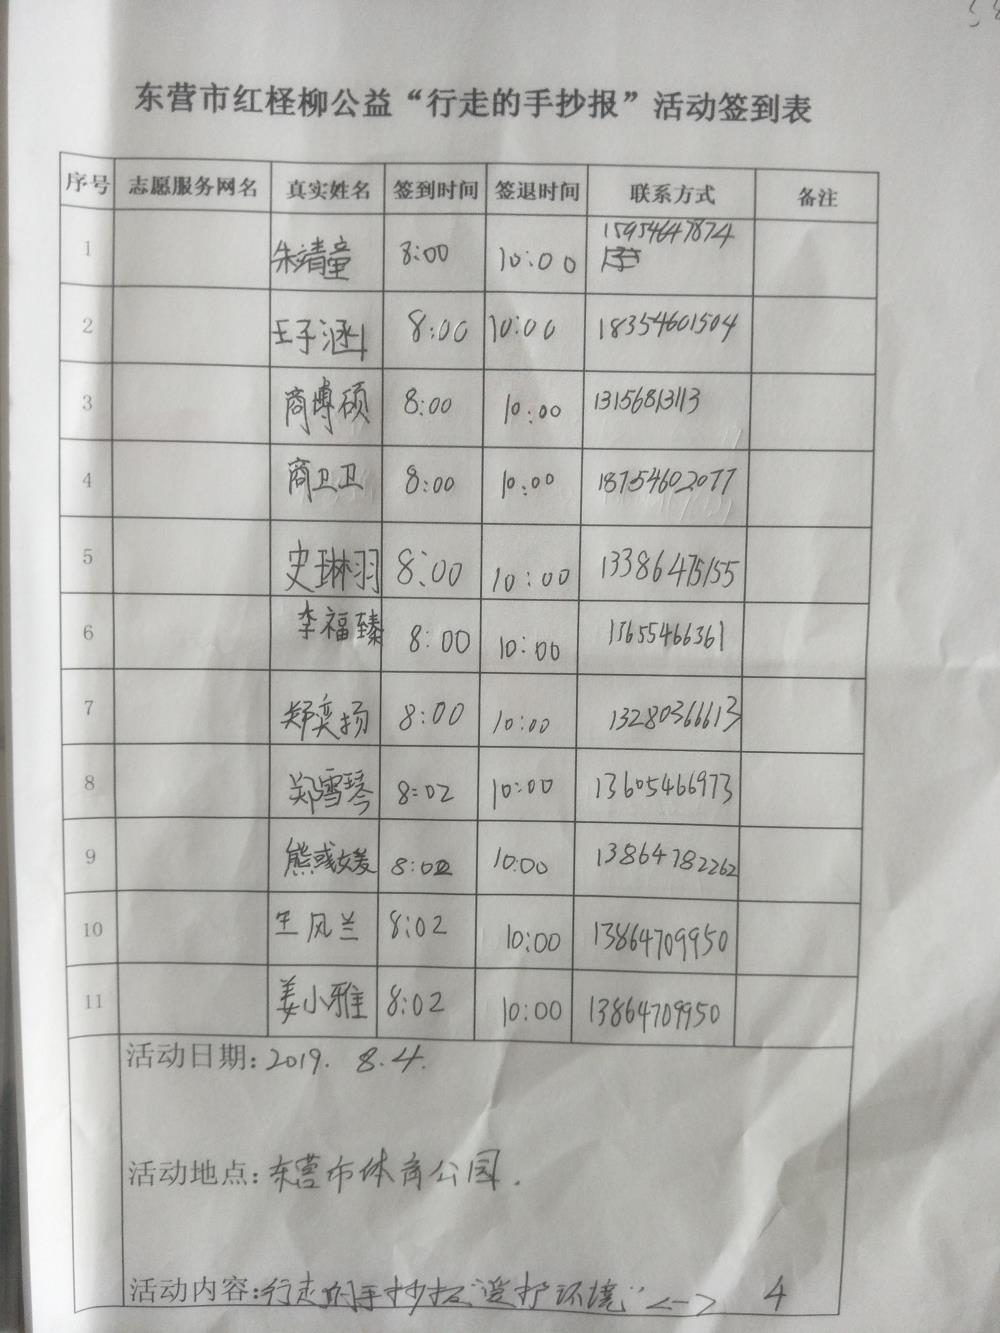 东营市红柽柳公益“行走的手抄报”活动签到表
序号 志愿服务网名 真实姓名 签到时间 签退时间 联系方式 备注
1 朱靖童 8:00 10:00 15954647874
2 王子涵 8:00 10:00 18354601504
3 商博硕 8:00 10:00 13156813113
4 商卫卫 8:00 10:00 18754602077
5 史琳羽 8:00 10:00 13386475155
6 李福臻 8:00 10:00 13655466361
7 郑奕扬 8:00 10:00 13280366613
8 郑雪琴 8:02 10:00 13605466973
9 熊彧媛 8:02 10:00 13864782262
10 王风兰 8:02 10:00 13864709950
11 姜小雅 8:02 10:00 13864709950
活动日期：2019. 8.4.
活动地点：东营市体育公园.
活动内容：行走的手抄报“爱护环境” <一> 4